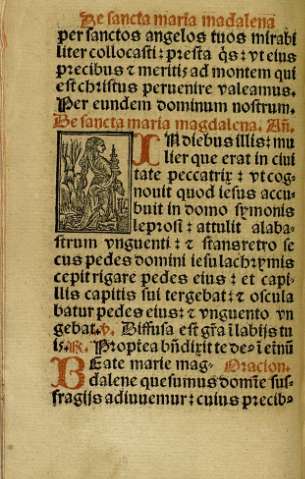 De sancta maria madalena
per sanctos angelos tuos mirabi
liter collocasti: presta q̄s: vt eius
precibus ⁊ meritis ad montem qui
est christus peruenire valeamus.
Per eundem dominum nostrum.
De sancta maria magdalena. Añ.
IN diebus illis: mu
lier que erat in ciui
tate peccatrix: vt cog-
nouit quod iesus accu
buit in domo symonis
leprosi: attulit alaba-
strum vnguenti: ⁊ stans retro se
cus pedes domini iesu lachrymis
cepit rigare pedes eius: et capi-
llis capitis sui tergebat: ⁊ oscula
batur pedes eius: ⁊ vnguento vn
gebat. v. Diffusa est gr̄a ĩ labijs tu
is. R. Propterea bñdixit te de⁹ ĩ etnũ
BEate marie mag- Oracion.
dalene quesumus domĩe suf-
fragijs adiuuemur: cuius precib⁹